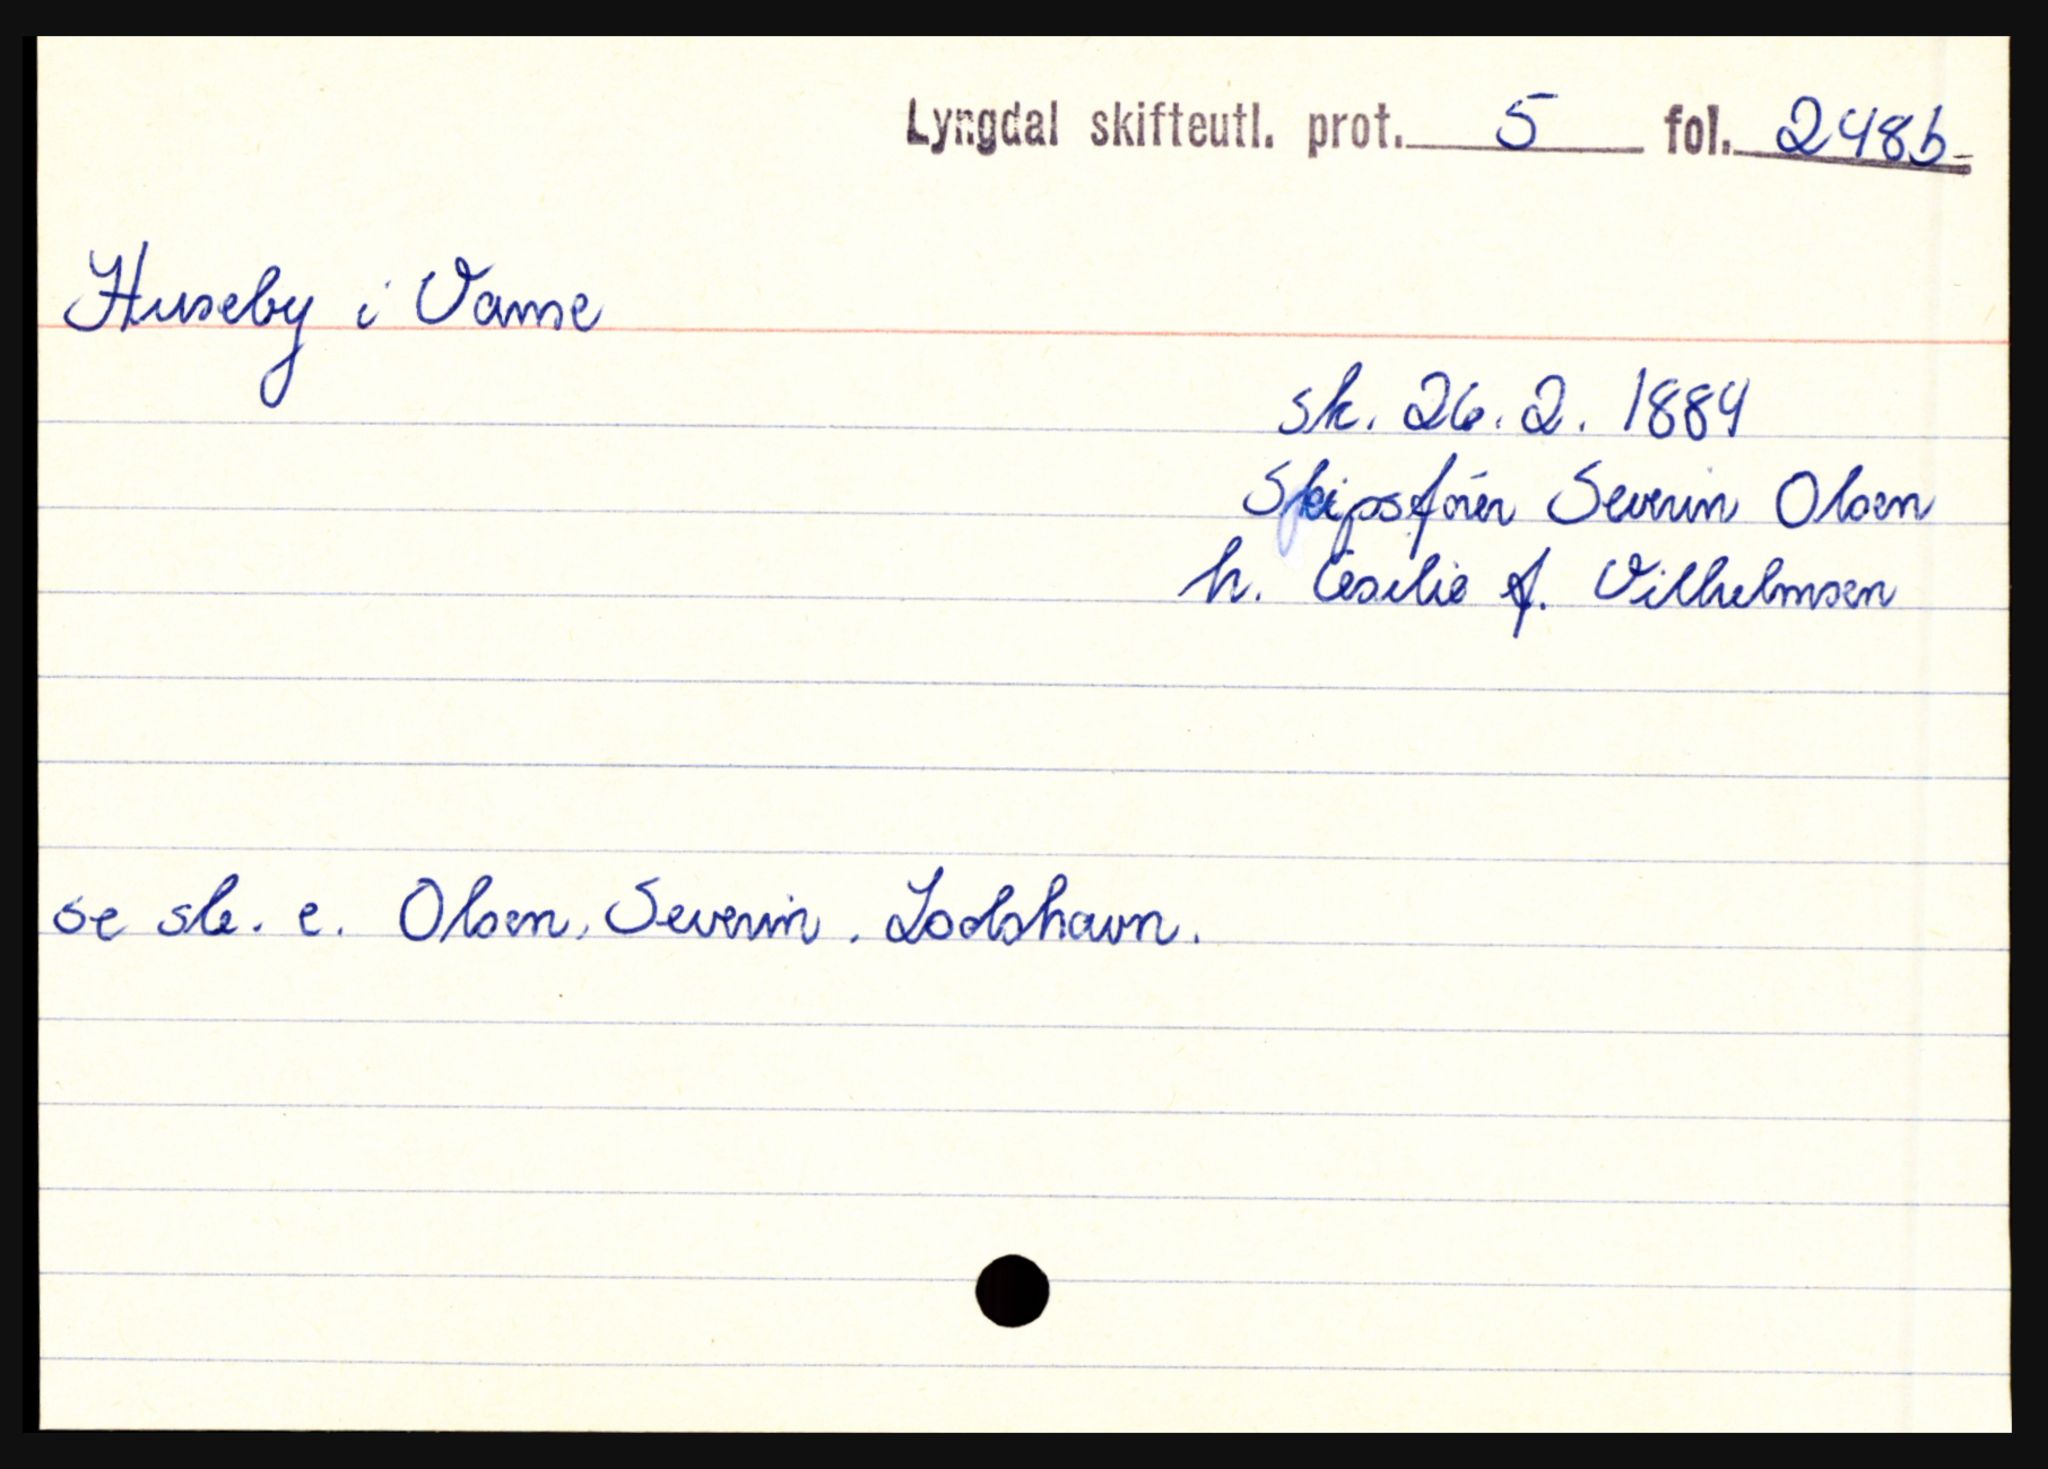 Lyngdal skifteutl. prot. 5 fol. 248b
Huseby i Vanse
sk. 26.2.1884
Skipsfører Severin Olsen
h. Cesilie f. Vilhelmsen
se sk. e. Olsen, Severin. Lodshavn.